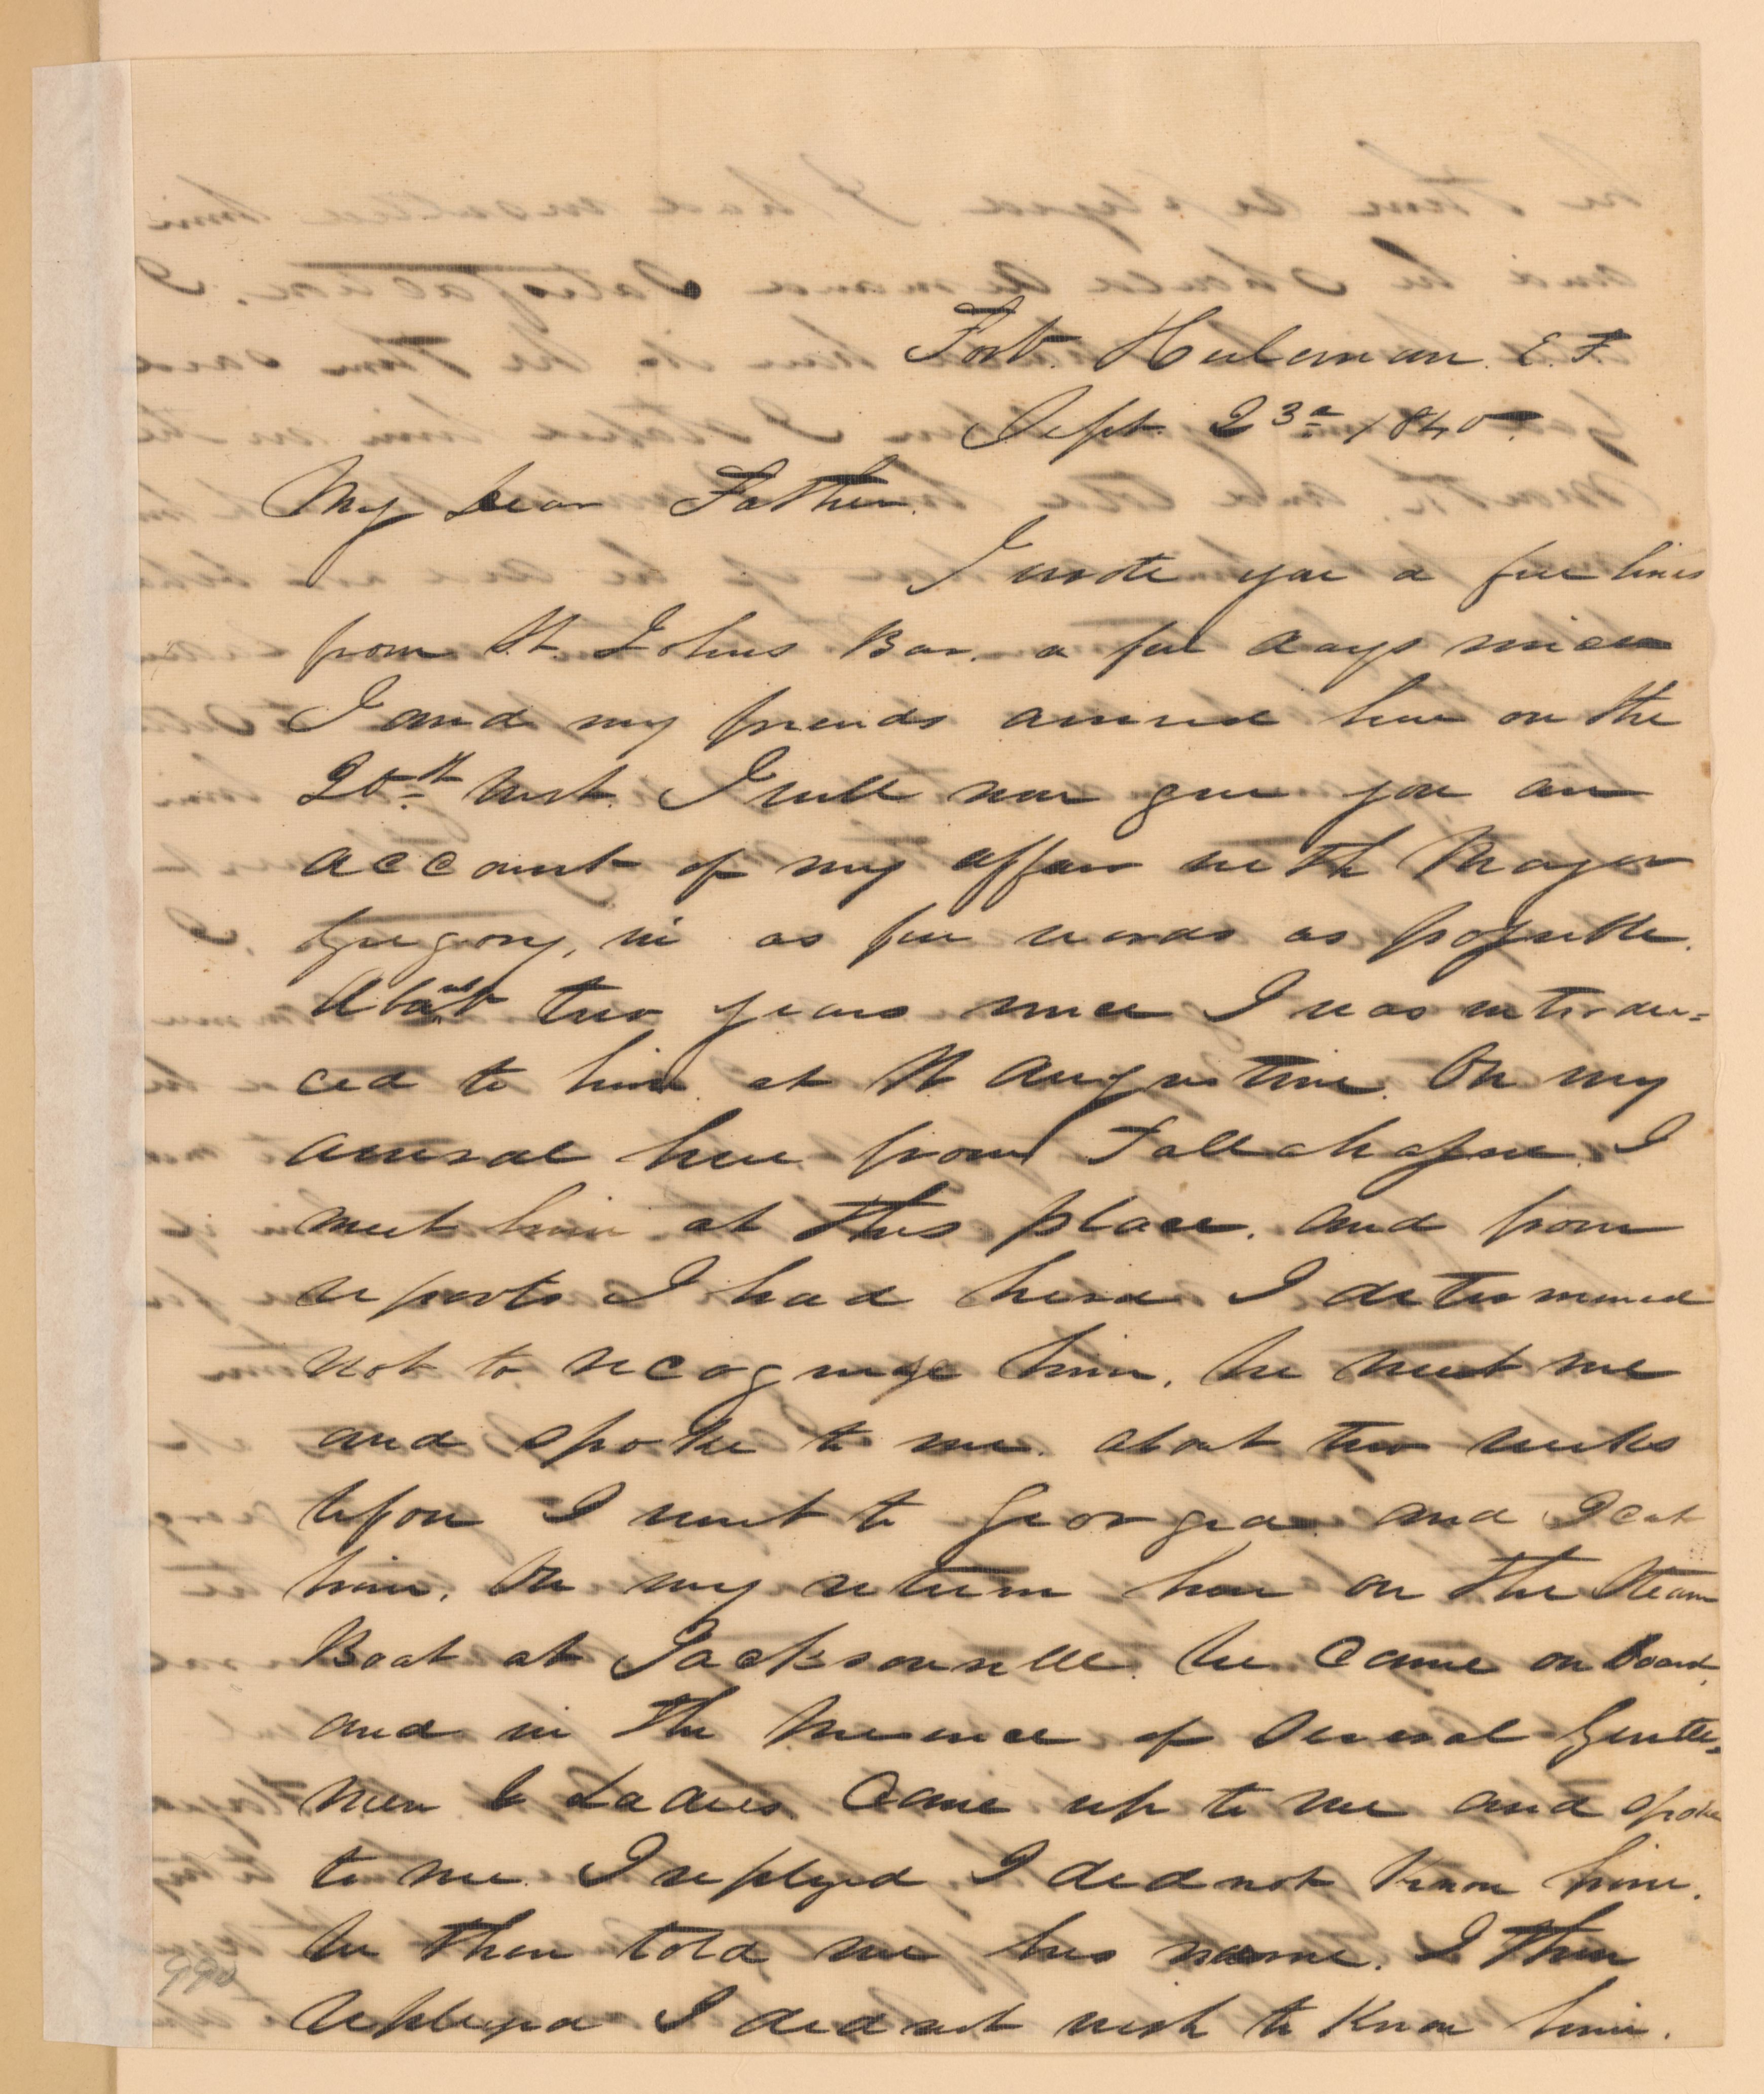 Fort. Heileman. E. F
Sept. 23d 1840.
My Dear Father.
I wrote you a few lines
from St. Johns Bar. a few days since
I and my friends arrived here on the
20th Inst. I will now give you an
account of my affair with Major
Gregory, in as few words as possible.
About two years since I was introdu=
ced to him at St Augustine. On my
arrival here from Tallahassee. I
meet him at this place. and from
reports I had heird I determined
not to recognize him. he meet me
and spoke to me. about two weeks
before I went to Georgia and I cut
him. On my return here on the Steam
Boat at Jacksonville. he came on board,
and in the presence of several Gentle=
men & Ladies Came up to me and spoke
to me. I replyed I did not know him.
he then told me his name. I then
replyed I did not wish to know him.
990